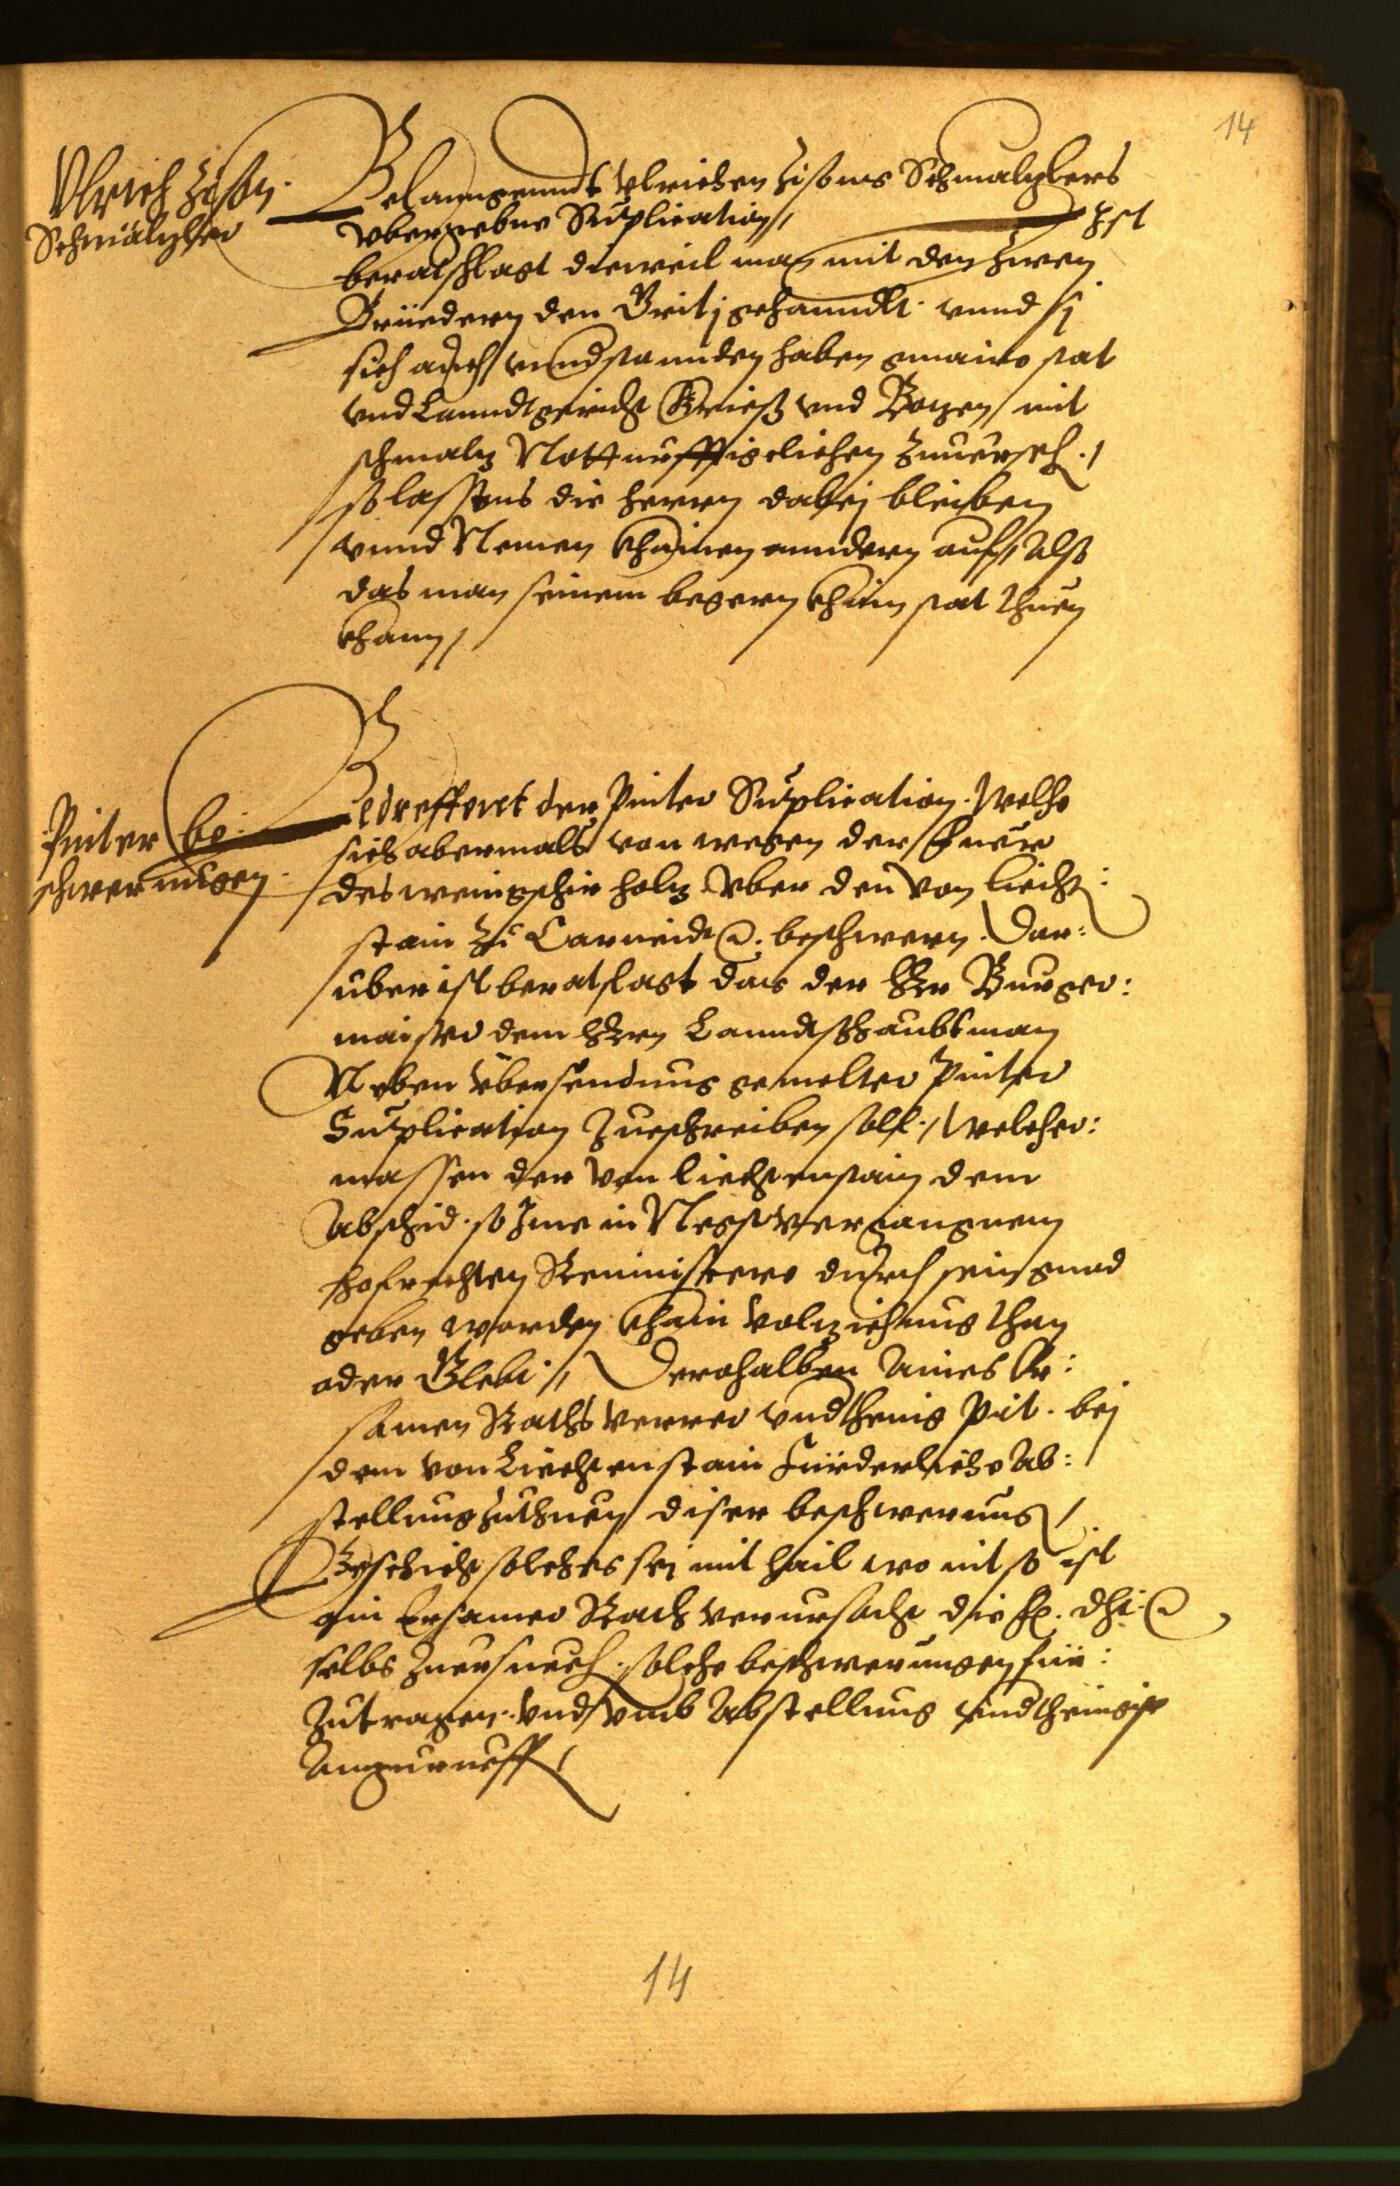 14
Ulrich Zison
Schmälzler
Belanngenndt Ulrichen Zisoms Schmalzlers
ubergebne Suplication, Ist
beratschlagt dieweil man mit den zwen
Brüedern den Britj gehanndlt. unnd sj
sich auch unndstannden haben gmaine stat
und Lanndtgericht Grieß und Bozen, mit
schmalz Notturfftigelichen zuuerseh./
so lassens die herrn dabej bleiben
unnd Nemen khainen anndern auf, Also
das man seinem begern khain stat thuen
khann,
Pinter be:
schwerungen.
Bedreffent der Pinter Suplication. Welche
sich abermals von wegen der
des weingschir holz Uber den von Liecht:
stain zu Carneid &. beschwern. Dar:
über ist beratslagt das der Her Burger:
maister dem Herrn Lanndtshaubtman
Neben übersendung gemelter Pinter
Suplication zueschreiben soll./ Welcher:
massen der von Liechtenstain dem
Abschid. so Ime in Negstvergangnem
hofrechten durch sein gnad
geben worden khain volziehung than
oder gleb. / Derohalben Aines Er:
samen Raths verrer undtthenig Pit. bej
dem von Liechtenstain Fürderliche Ab:
stellung zuthuen diser beschwerung /
Geschicht solches sej mit hail wo nit so ist
ain Ersamer Rath verursacht die fr. dht: &
selbs zuersuech. solche beschwerungen für:
zutragen. und umb Abstellung undthenigist
Anzurueff /
14